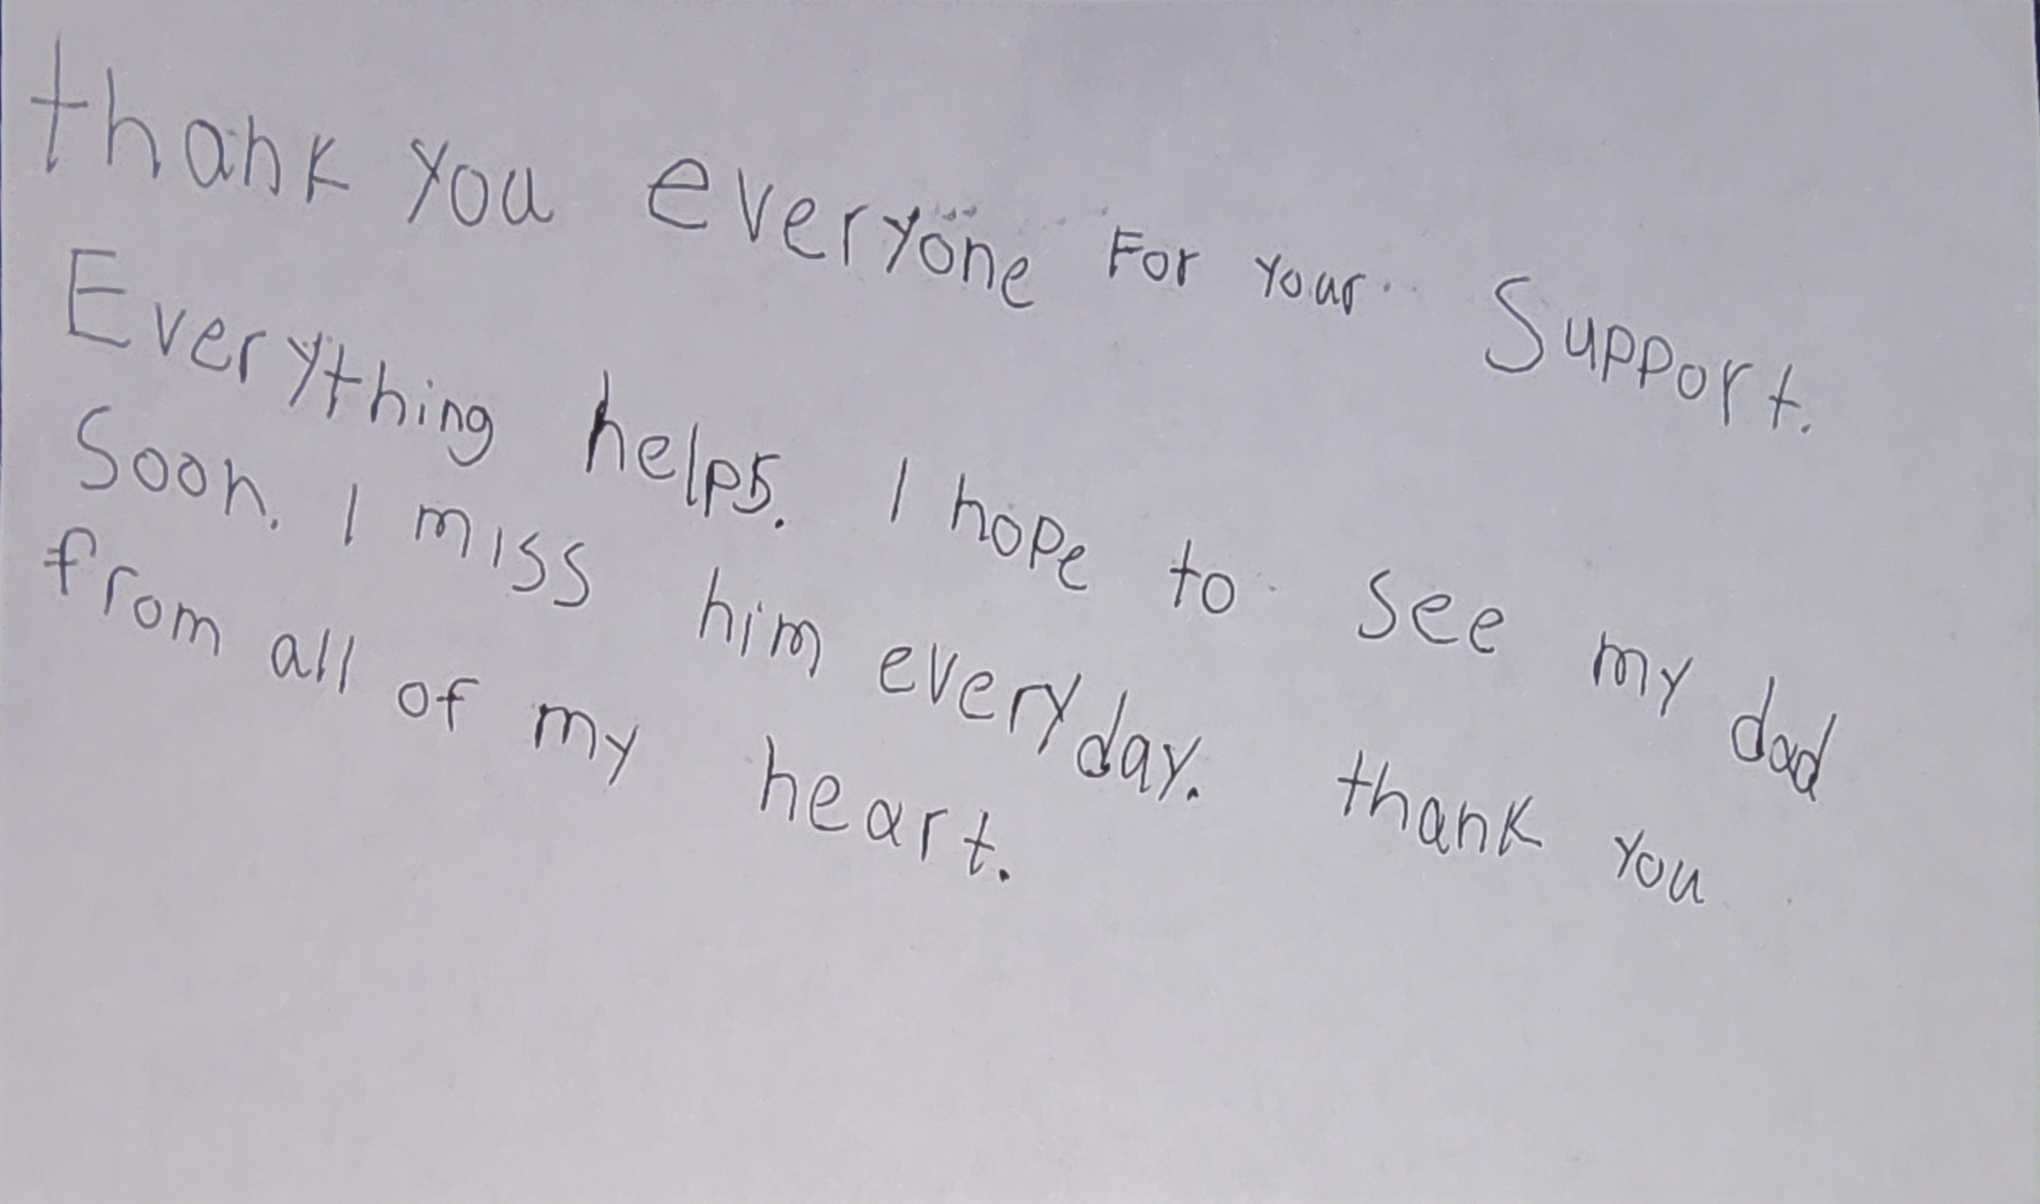 thank you everyone For your Support.
Everything helps. I hope to see my dad
Soon. I miss him everyday. thank you
from all of my heart.